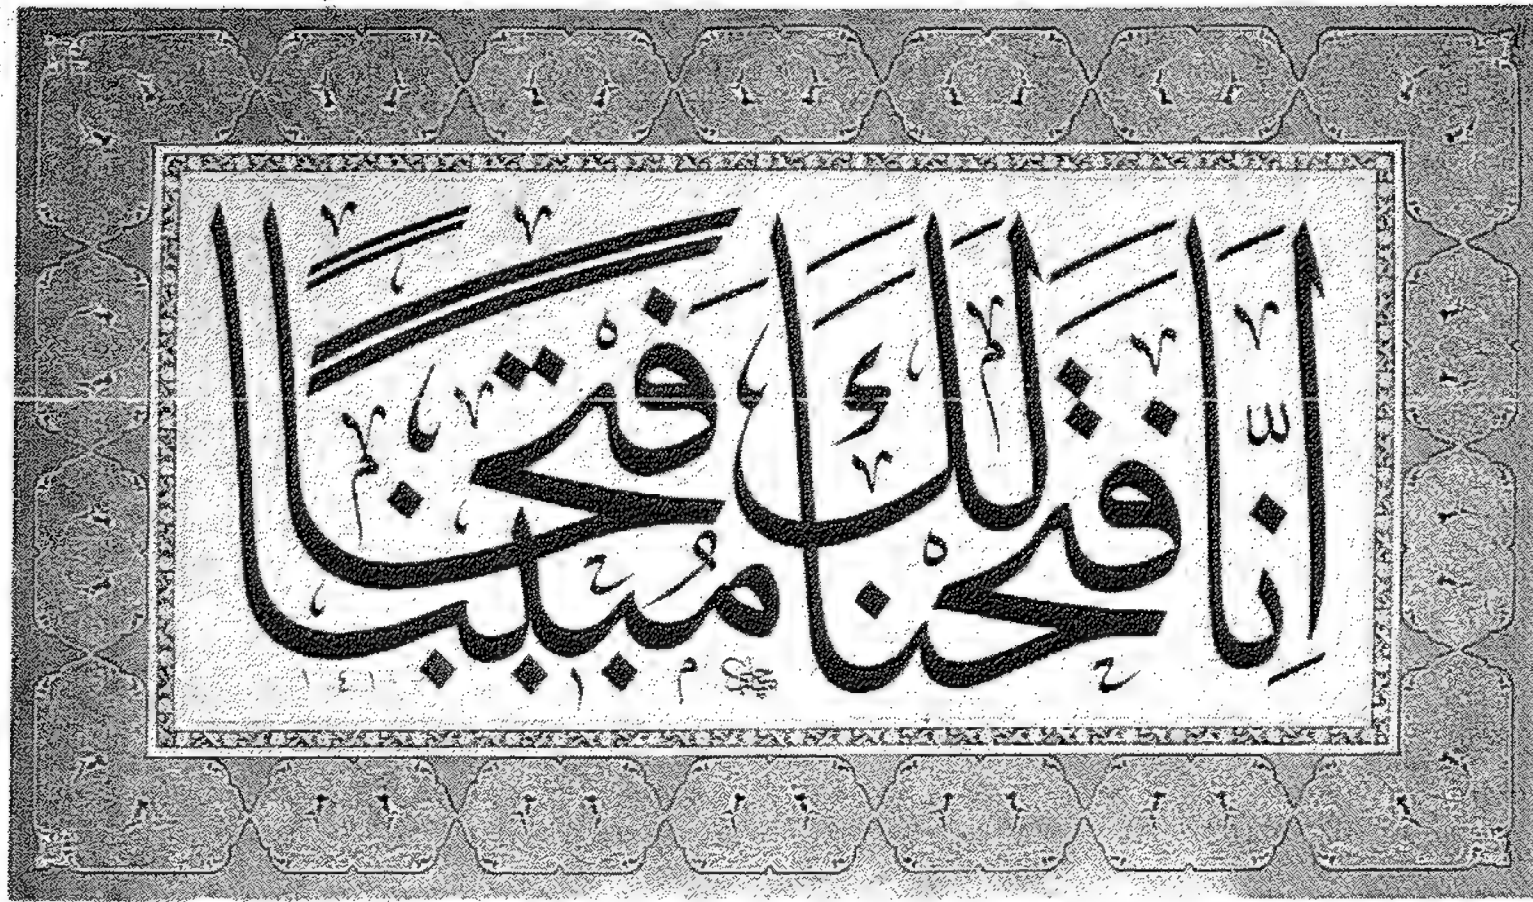 إِنَّا فَتَحْنَا لَكَ فَتْحًا مُّبِينًا